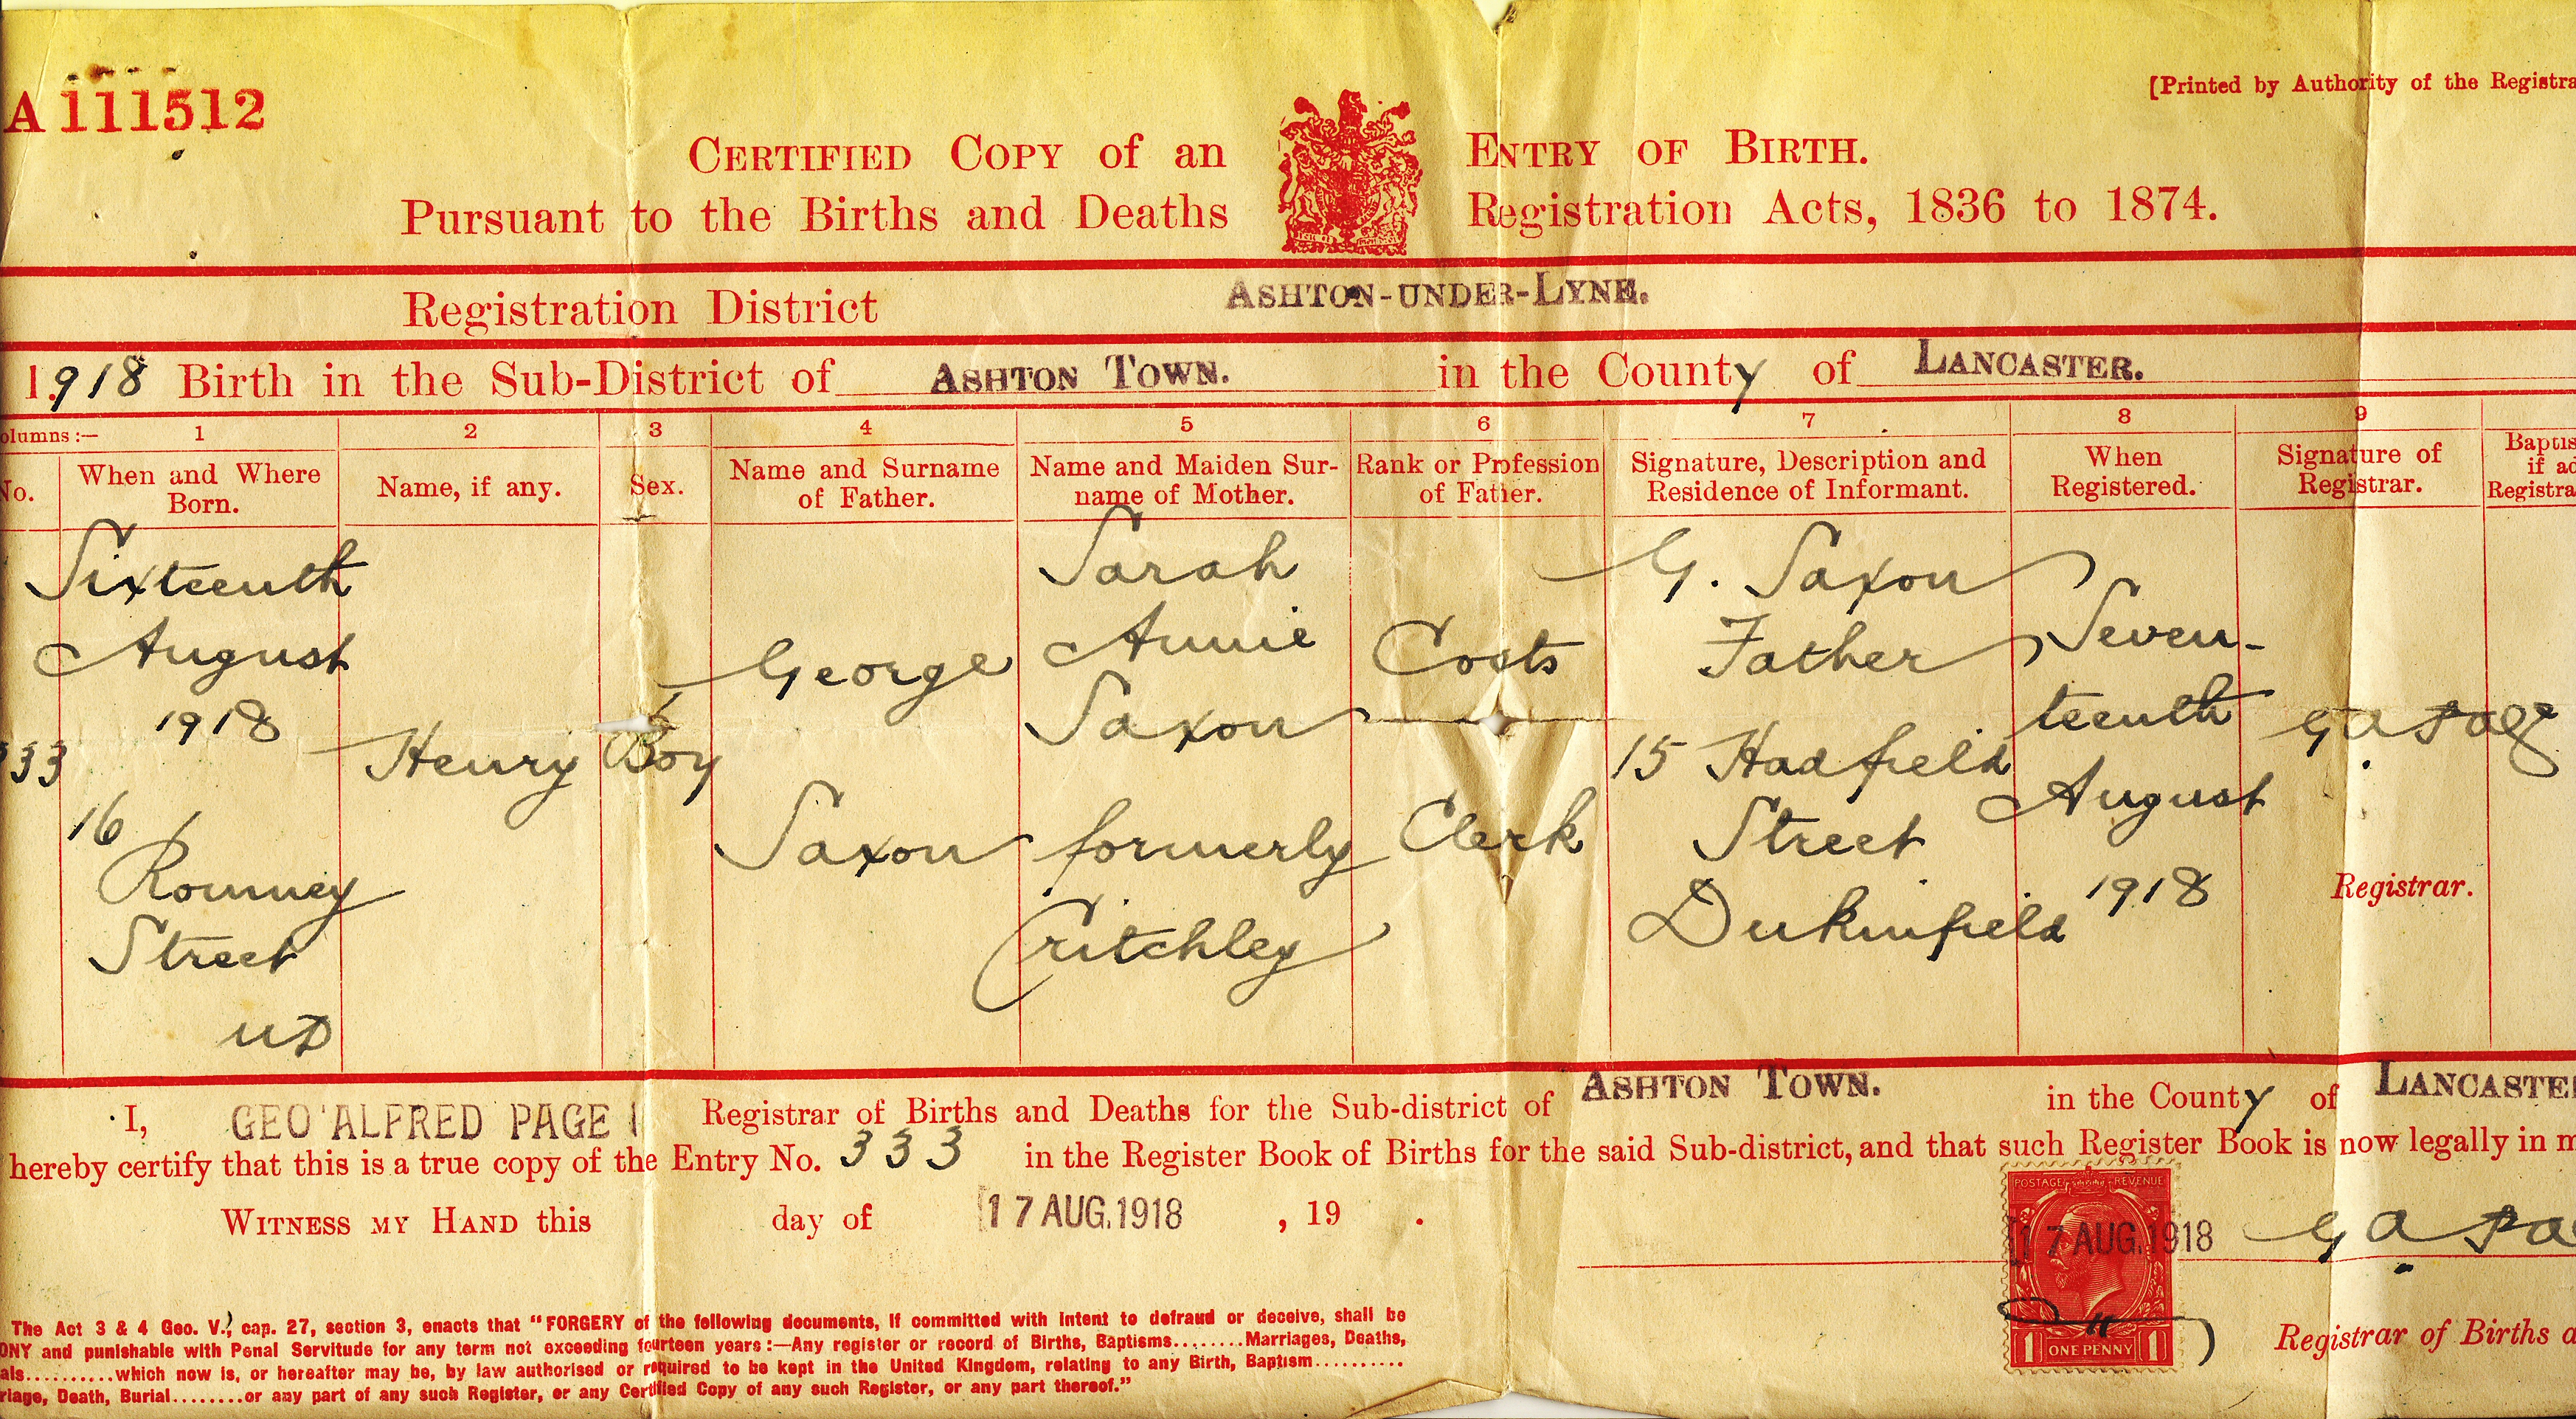 A 111512
[Printed by Authority of the Registra
CERTIFIED COPY of an ENTRY OF BIRTH.
Pursuant to the Births and Deaths Registration Acts, 1836 to 1874.
Registration District ASHTON-UNDER-LYNE.
1918 Birth in the Sub-District of ASHTON TOWN. in the County of LANCASTER.
olumns:— 1 2 3 4 5 6 7 8 9
No. When and Where Born. Name, if any. Sex. Name and Surname of Father. Name and Maiden Surname of Mother. Rank or Profession of Father. Signature, Description and Residence of Informant. When Registered. Signature of Registrar. Baptis if ad Registra
333
Sixteenth
August
1918
16
Romney
Street
UD
Henry
Boy
George
Saxon
Sarah
Annie
Saxon
formerly
Critchley
Costs
Clerk
G. Saxon
Father
15 Hadfield
Street
Dukinfield
Seven-
teenth
August
1918
G A Page
Registrar.
I, GEO ALFRED PAGE Registrar of Births and Deaths for the Sub-district of ASHTON TOWN. in the County of LANCASTE
hereby certify that this is a true copy of the Entry No. 333 in the Register Book of Births for the said Sub-district, and that such Register Book is now legally in m
WITNESS MY HAND this day of 17 AUG. 1918 , 19 .
POSTAGE REVENUE
17 AUG. 1918
G A Pa
1 ONE PENNY 1
Registrar of Births a
The Act 3 & 4 Geo. V., cap. 27, section 3, enacts that "FORGERY of the following documents, if committed with intent to defraud or deceive, shall be
ONY and punishable with Penal Servitude for any term not exceeding fourteen years:—Any register or record of Births, Baptisms........Marriages, Deaths,
als..........which now is, or hereafter may be, by law authorised or required to be kept in the United Kingdom, relating to any Birth, Baptism..........
riage, Death, Burial........or any part of any such Register, or any Certified Copy of any such Register, or any part thereof."